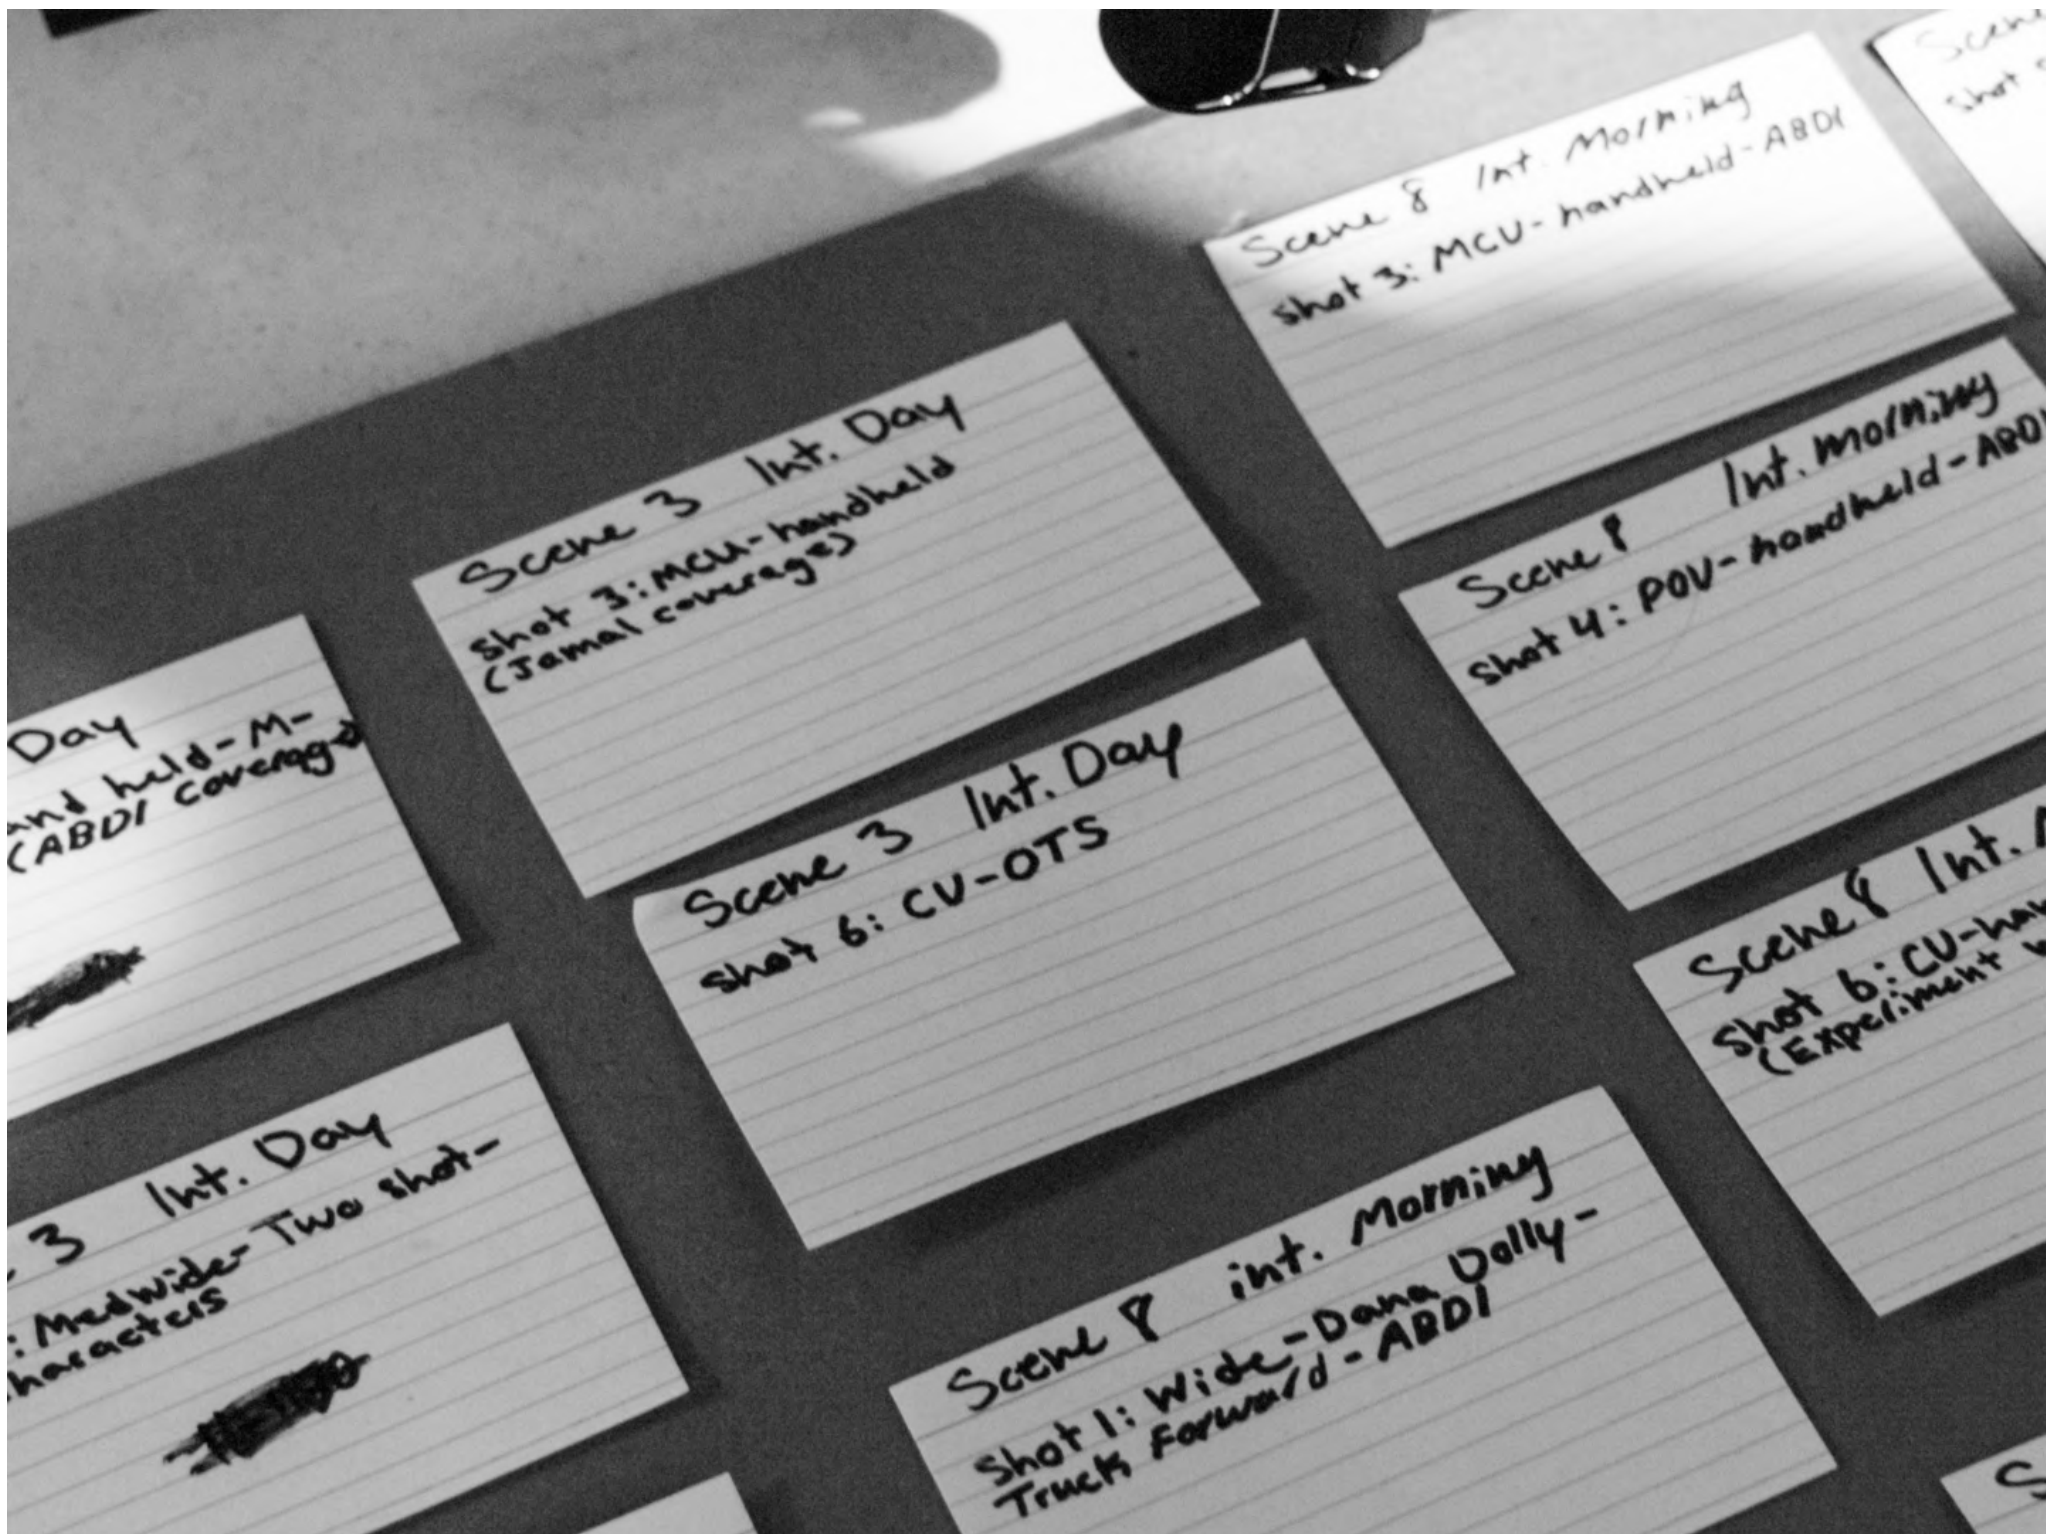 Scene
shot
Scene 8 Int. Morning
shot 3: MCU-handheld-ABDI
Scene 3 Int. Day
shot 3: MCU-handheld
(Jamal coverage)
Scene 8 Int. morning
shot 4: POV-handheld-ABDI
Day
held-M-
(ABDI coverage)
Scene 3 Int. Day
shot 6: CU-OTS
Scene 8 Int.
shot 6: CU-
(Experiment
3 Int. Day
: Medwide-Two shot-
Scene 8 int. Morning
Shot 1: Wide-Dana Dolly-
Truck Forward-ABDI